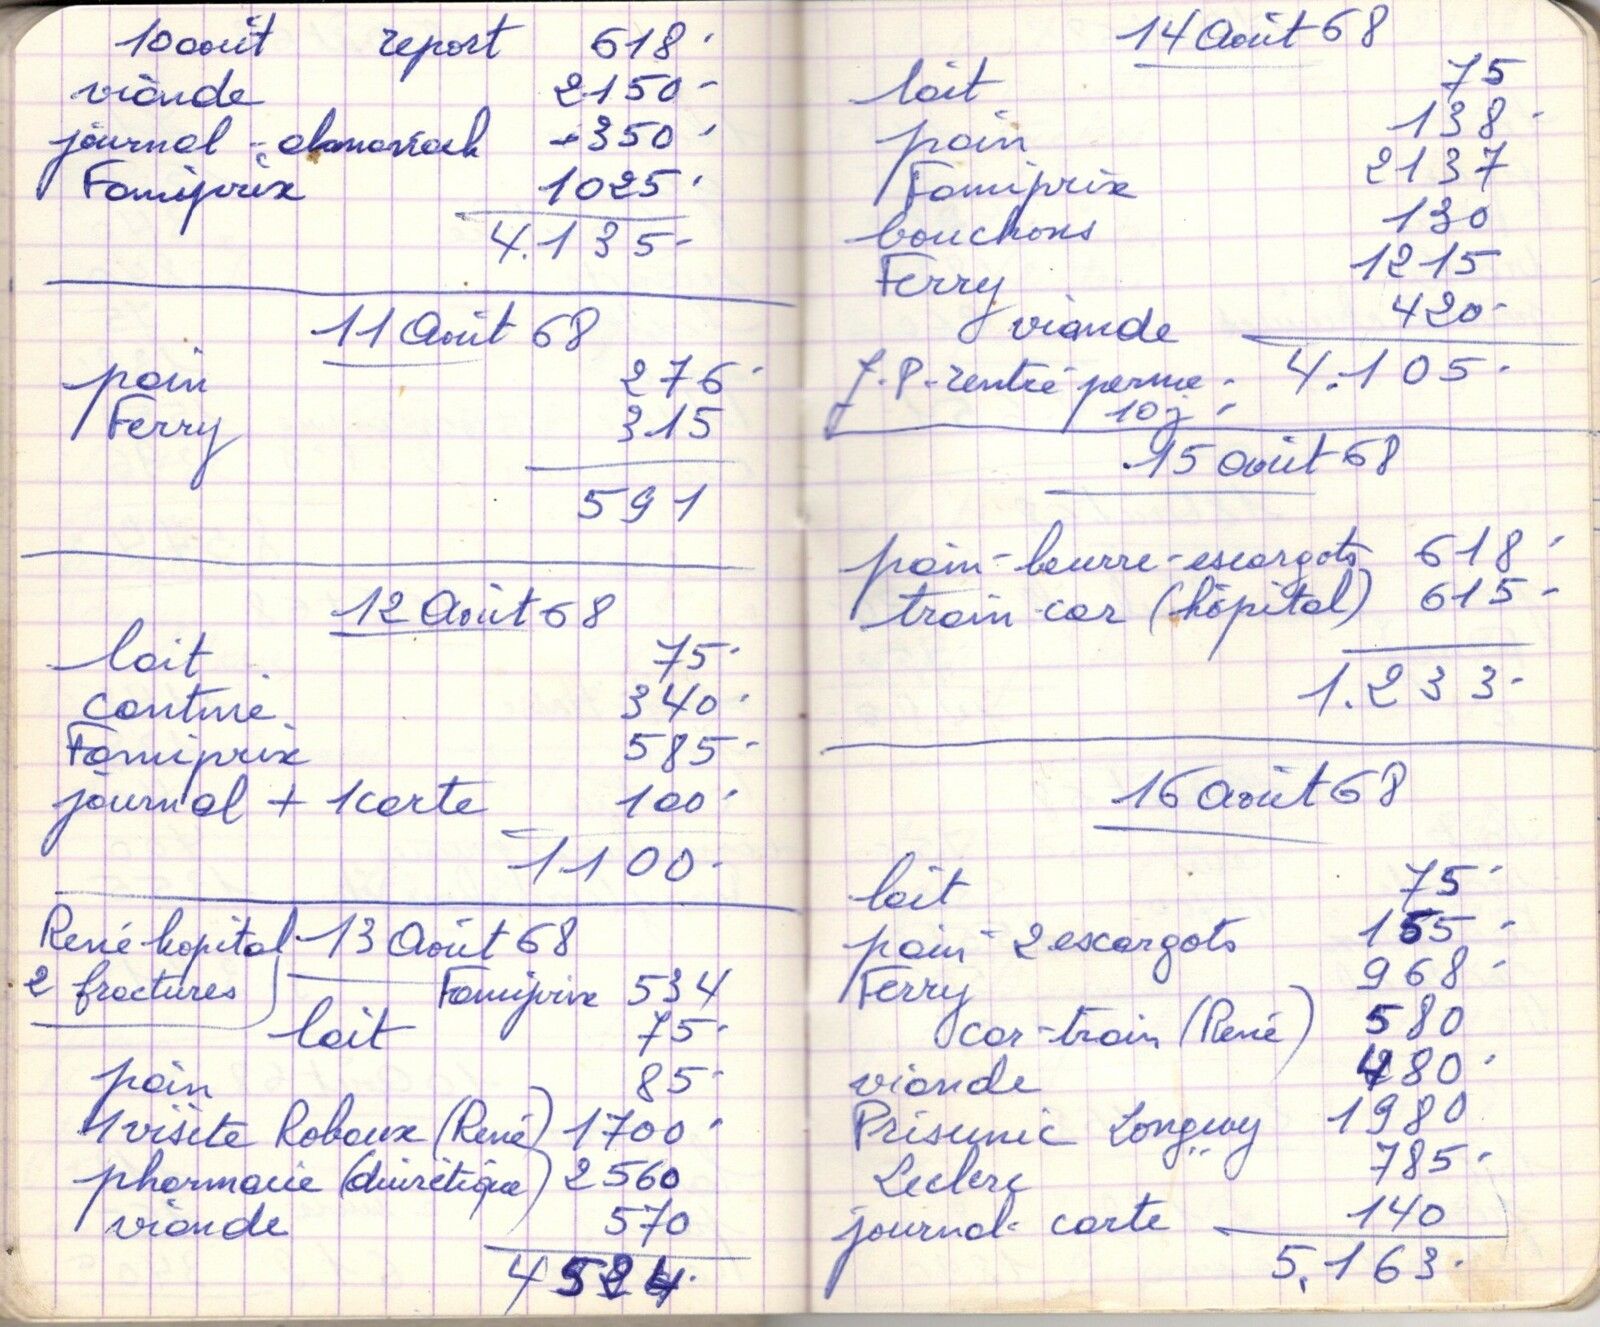 10 août report 618
viande 2150-
journal - almanach -350
Famiprix 1025
4.135-
11 Août 68
pain 276
Ferry 315
591
12 Août 68
lait 75
cantine 340
Famiprix 585
journal + 1 carte 100
1100
René hopital 13 Août 68
2 fractures Famiprix 534
lait 75
pain 85
1 visite Roboux (René) 1700
pharmacie (diurétique) 2560
viande 570
4524
14 Août 68
lait 75
pain 138
Famiprix 2137
bouchons 130
Ferry 1215
viande 420
J.P. rentré perme - 4.105
10 j
15 août 68
pain - beurre - escargots 618
train car (hôpital) 615
1.233
16 août 68
lait 75
pain - 2 escargots 155
Ferry 968
car-train (René) 580
viande 480
Prisunic Longwy 1980
Leclerc 785
journal - carte 140
5.163